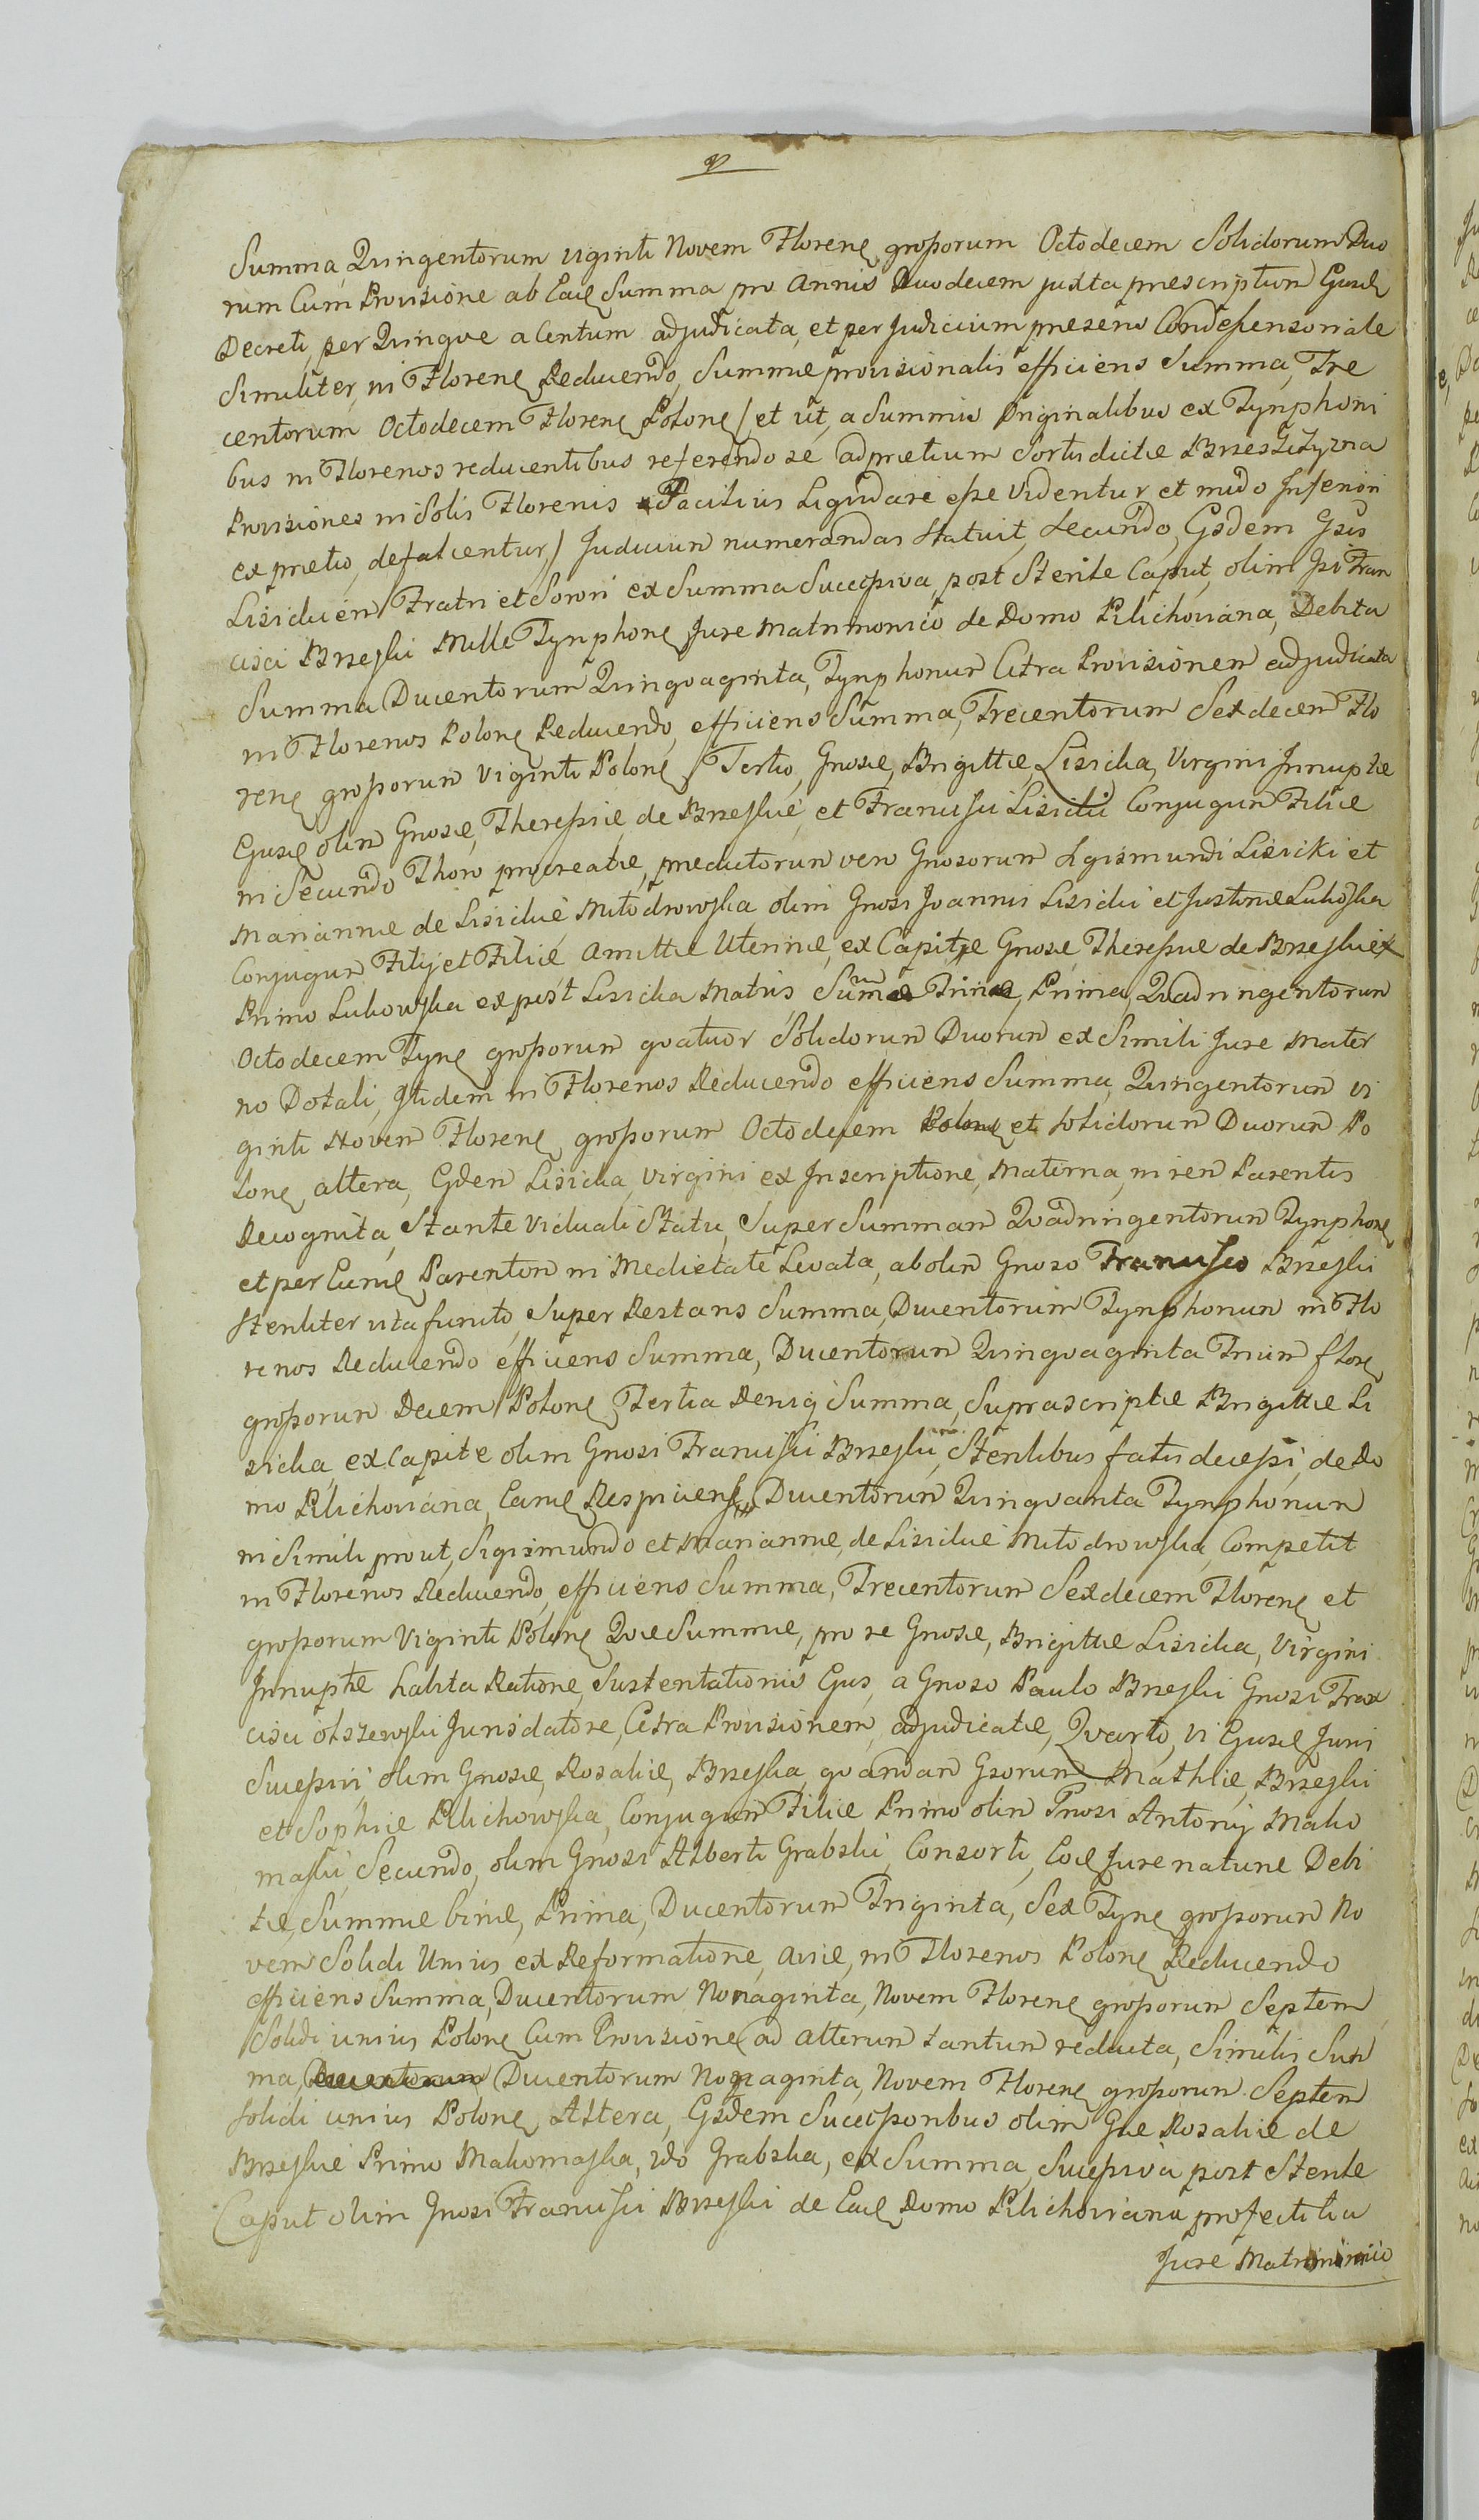 Summa, Quingentorum viginti Novem Floreng grossorum Octodecem Solidorum Duo
rum Cum Provisione ab Eadg Summa pro Annis Duodecem juxta prescriptum Gusdg
Decreti, per Quinque a Centum adjudicata, et per Judicium presens Condescensoriale
Similiter, in Floreng Reducendo, Summæ provisionalis efficiens Summa, Tre
centorum Octodecem Floreng Polong / et ut, a Summis Originalibus ex Tynphoni
bus in Florenos reducentibus referendo se ad pretium Sortis dictæ
Provisiones in Solis Florenis Facilius Liquidari esse Videntur et modo Inferiori
ex pretio, defalcentur, / Judicium numerandas Statuit, Secundo, Gsdem Gsis
Lisickien Fratri et Sorori ex Summa Successiva, post Sterile Caput, olim Gsi Fran
cisci Brzeski Mille Tynphong Jure Matrimonio de Domo Pilichoviana, Debita
Summa Ducentorum Quinquaginta, Tynphonum Citra Provisionem adjudicata
in Florenos Polong Reducendo, efficiens Summa, Trecentorum Sexdecem Flo
reng grossorum Viginti Polong / Tertio, Gnosæ, Brigittæ, Lisicka, Virgini Innuptæ
Ejusdg olim Gnosæ, Theressiæ, de Brzeskie, et Francisci Lisicki Conjugum Filiæ
in Secundo Thoro procreatæ, predictorum vero Gnosorum Sigismundi Lisicki et
Mariannæ de Lisickie Mitodrowska olim Gnosi Joannis Lisicki et Justinæ Lukoska
Conjugum Filij et Filiæ Amittæ Uterinæ, ex Capite Gnosæ Theressiæ de Brzeskie
Primo Lukowska ex post Lisicka Matris Summæ Trinæ, Prima, Quadringentorum
Octodecem Tyng grossorum quatuor Solidorum Duorum ex Simili Jure Mater
no Dotali, Itidem in Florenos Reducendo efficiens Summa, Quingentorum vi
ginti Novem Floreng grossorum Octodecem Polong et Solidorum Duorum Po
long, altera, Gsdem Lisicka, Virgini ex Inscriptione, Materna, in rem Parentis
Recognita, Stante Viduali Statu, Super Summam Quadringentorum Tynphong
et per Eamg Parentem in Medietate Levata, ab olim Gnoso Francisco Brzeski
Steriliter vita functo, Super Restans Summa, Ducentorum Tynphonum in Flo
renos Reducendo efficiens Summa, Ducentorum Quinquaginta Trium flore
grossorum Decem Polong, Tertia Deniq Summa, Suprascriptæ Brigittæ Li
sicka, ex Capite olim Gnosi Francisci Brzeski, Sterilibus fatis decessi, de Do
mo Pilichoviana Eamg Respiciens Ducentorum Quinquanta Tynphonum
in Simili prout, Sigismundo et Mariannæ, de Lisickie Mitodrowska, Competit
in Florenos Reducendo, efficiens Summa, Trecentorum Sexdecem Floreng et
grossorum Viginti Polong Quæ Summæ, pro re Gnosæ, Brigittæ Lisicka, Virgini
Innuptæ habita Ratione, Sustentationis Ejus, a Gnoso Paulo Brzeski Gnosi Fran
cisci Olszewski Jurisdatore, Citra Provisionem, adjudicatæ, Quarto, Vi Ejusdg Juris
Successivi, olim Gnosæ, Rosaliæ, Brzeska, quandam Gsorum Mathiæ, Brzeski
et Sophiæ Pilichowska, Conjugum Filiæ Primo olim Gnosi Antonij Mako
maski, Secundo, olim Gnosi Alberti Grabski, Consorti, Eodg Jure naturæ Debi
tæ, Summæ binæ, Prima, Ducentorum Triginta, Sex Tyng grossorum No
vem Solidi Unius ex Reformatione, Aviæ, in Florenos Polong Reducendo
efficiens Summa, Ducentorum Nonaginta, Novem Floreng grossorum Septem
Solidi unius Polong Cum Provisione ad alterum tantum reducta, Similis Sum
ma, Ducentorum Ducentorum Nonaginta, Novem Floreng grossorum Septem
Solidi unius Polong, Altera, Gsdem Successoribus olim Gnæ Rosaliæ de
Brzeskie Primo Makomaska, 2do Grabska, ex Summa, Successiva post Sterile
Caput olim Gnosi Francisci Brzeski de Eadg Domo Pilichoviana profectitia
Jure Matrimonio